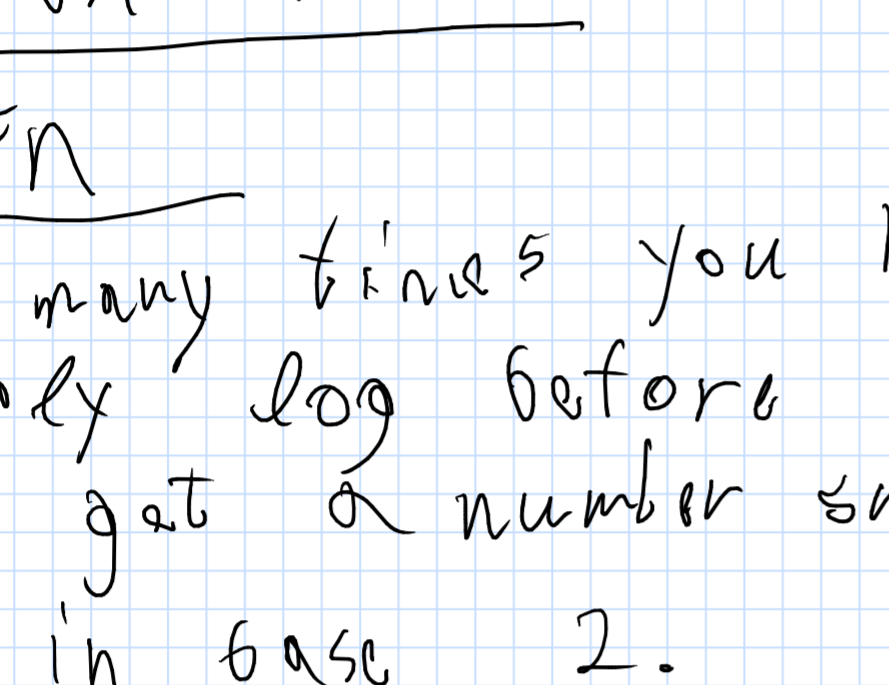 n
many times you
ly log before
get a number
in base 2.